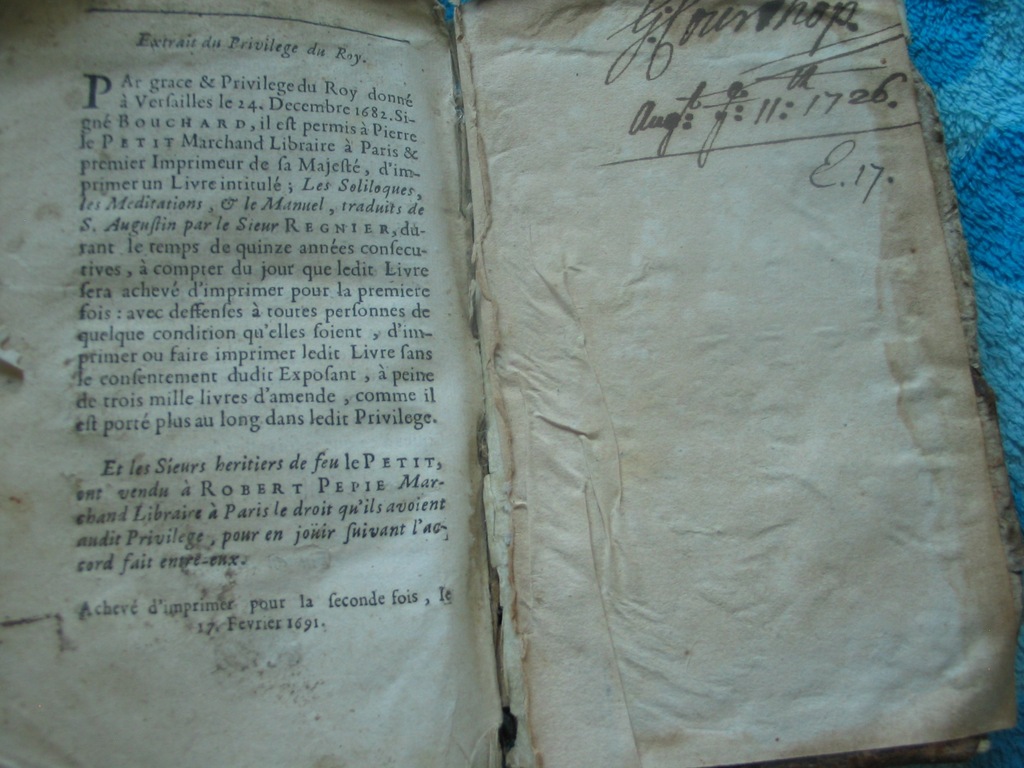 Extrait du Privilege du Roy.
PAr grace & Privilege du Roy donné
à Verſailles le 24. Decembre 1682. Si-
gné BOUCHARD, il eſt permis à Pierre
le PETIT Marchand Libraire à Paris &
premier Imprimeur de ſa Majeſté, d'im-
primer un Livre intitulé ; Les Soliloques,
les Meditations, & le Manuel, traduits de
S. Auguſtin par le Sieur REGNIER, du-
rant le temps de quinze années conſecu-
tives, à compter du jour que ledit Livre
ſera achevé d'imprimer pour la premiere
fois : avec deffenſes à toutes perſonnes de
quelque condition qu'elles ſoient, d'im-
primer ou faire imprimer ledit Livre ſans
le conſentement dudit Expoſant, à peine
de trois mille livres d'amende, comme il
eſt porté plus au long dans ledit Privilege.
Et les Sieurs heritiers de feu le PETIT,
ont vendu à ROBERT PEPIE Mar-
chand Libraire à Paris le droit qu'ils avoient
audit Privilege, pour en joüir ſuivant l'ac-
cord fait entre-eux.
Achevé d'imprimer pour la ſeconde fois, le
17. Fevrier 1691.
Augt: ye: 11: th 1726.
E. 17.